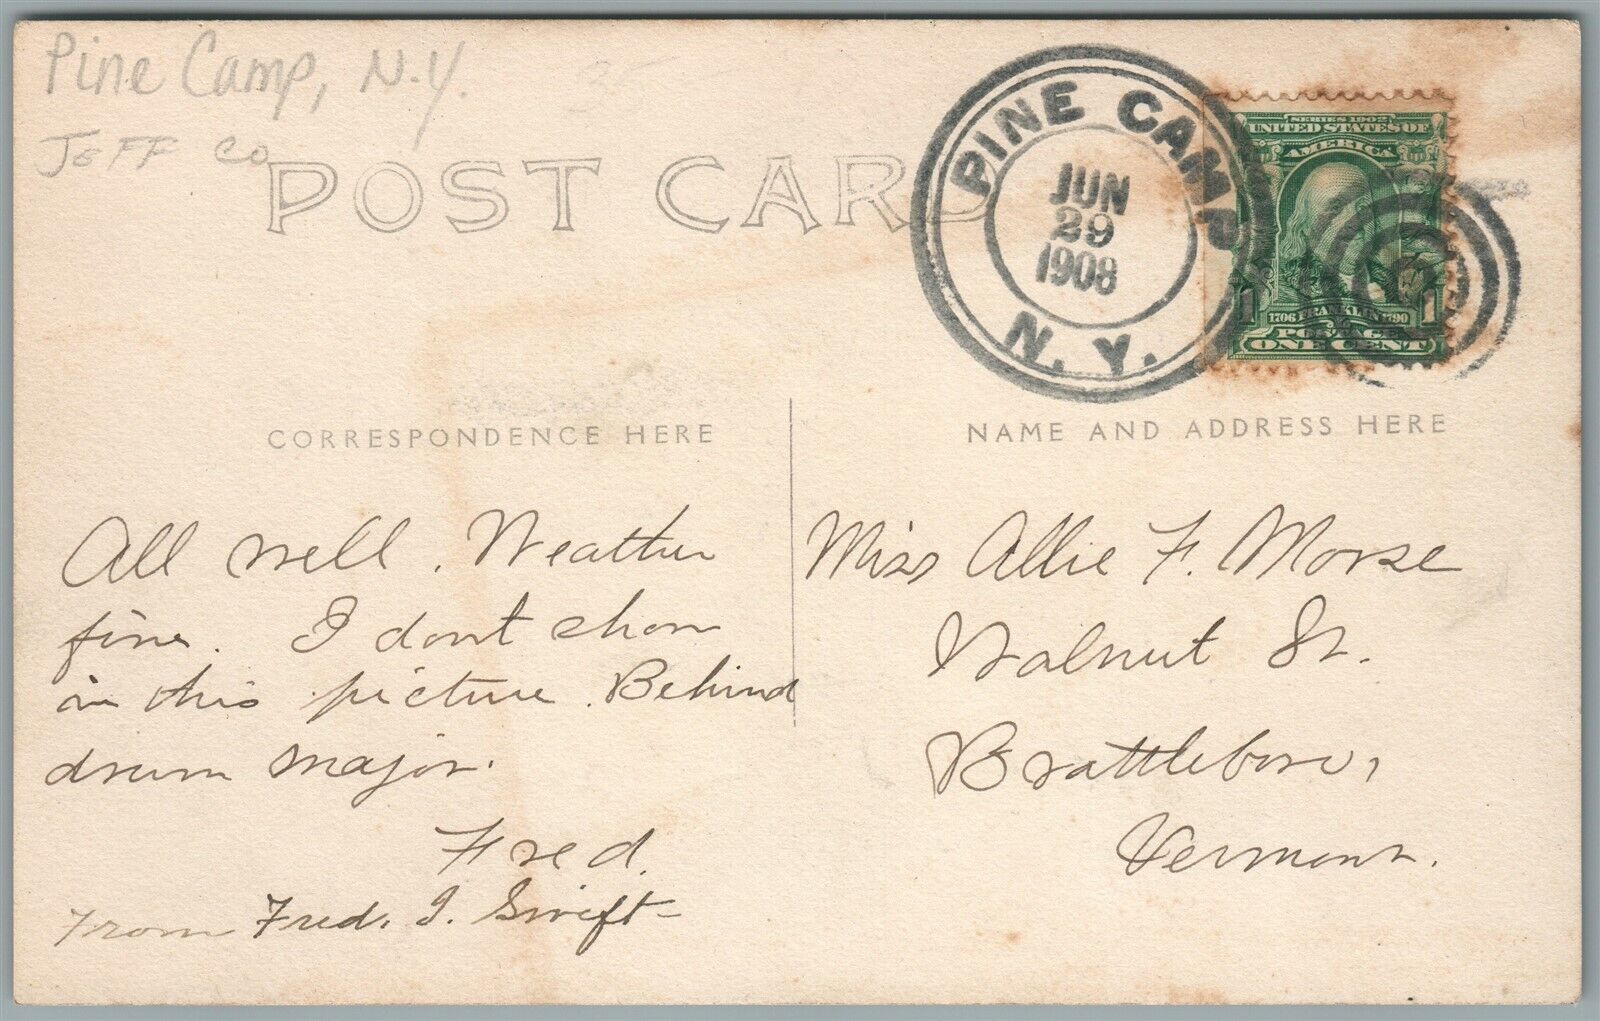 Pine Camp, N.Y.
JEFF CO
POST CARD
PINE CAMP
JUN
29
1908
N. Y.
SERIES 1902
UNITED STATES OF
AMERICA
1 1
1706 FRANKLIN 1790
POSTAGE
ONE CENT
CORRESPONDENCE HERE
All well. Weather
fine. I dont show
in this picture. Behind
drum major.
Fred.
From Fred. I. Swift
NAME AND ADDRESS HERE
Miss Allie F. Morse
Walnut St.
Brattleboro,
Vermont.